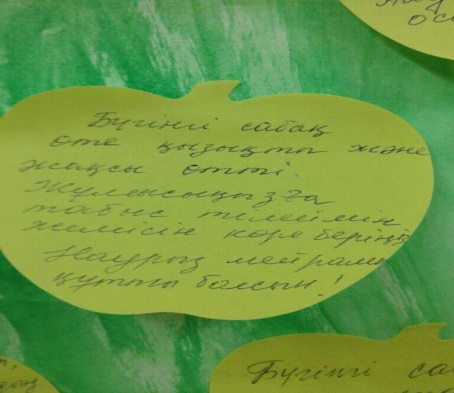 Бүгінгі сабақ
өте қызықты және
жақсы өтті.
Жұмысыңызға
табыс тілеймін
жемісін көре беріңіз
Наурыз мейрамы
құтты болсын!
Бүгінгі саб